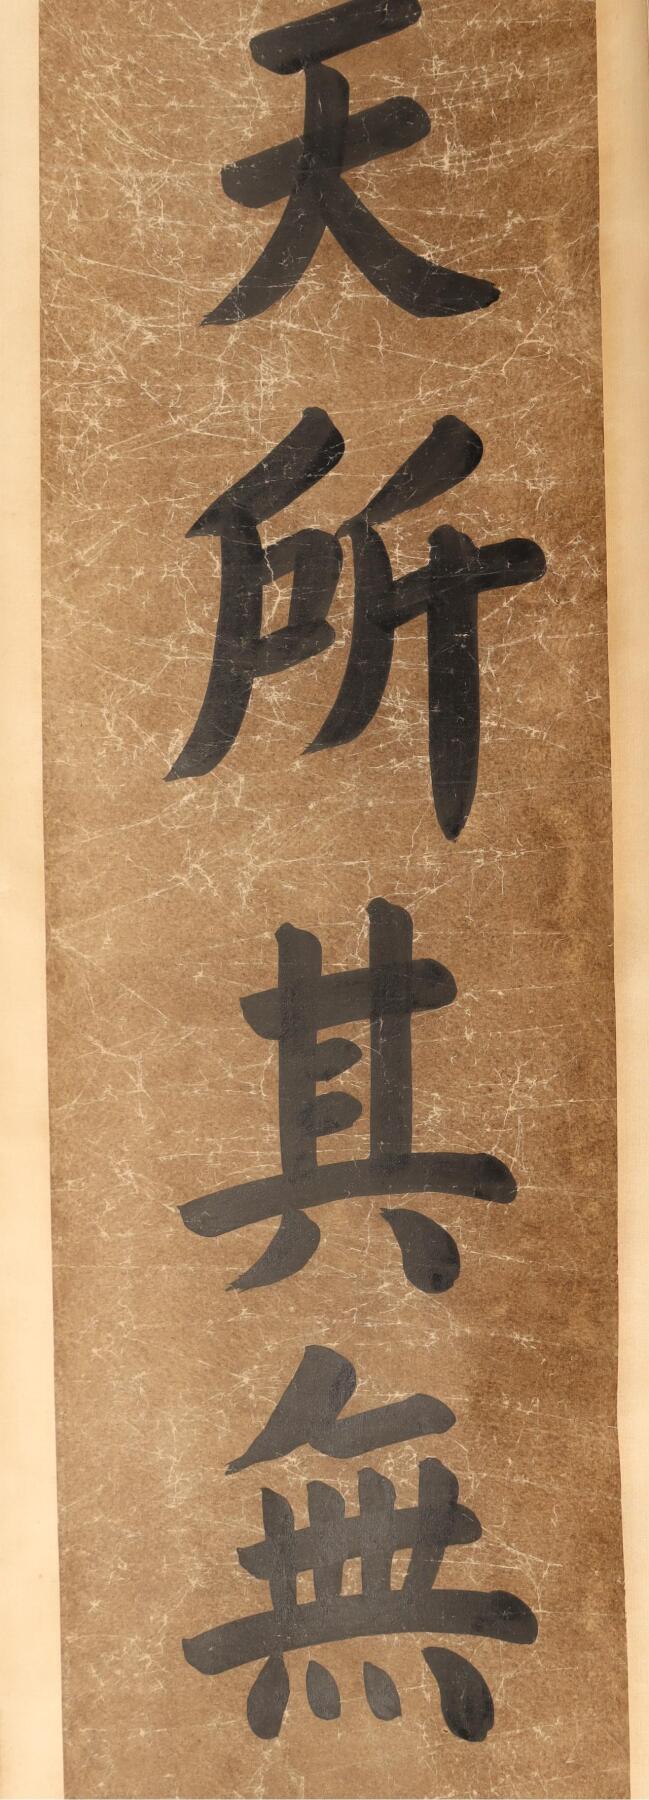 天所其無